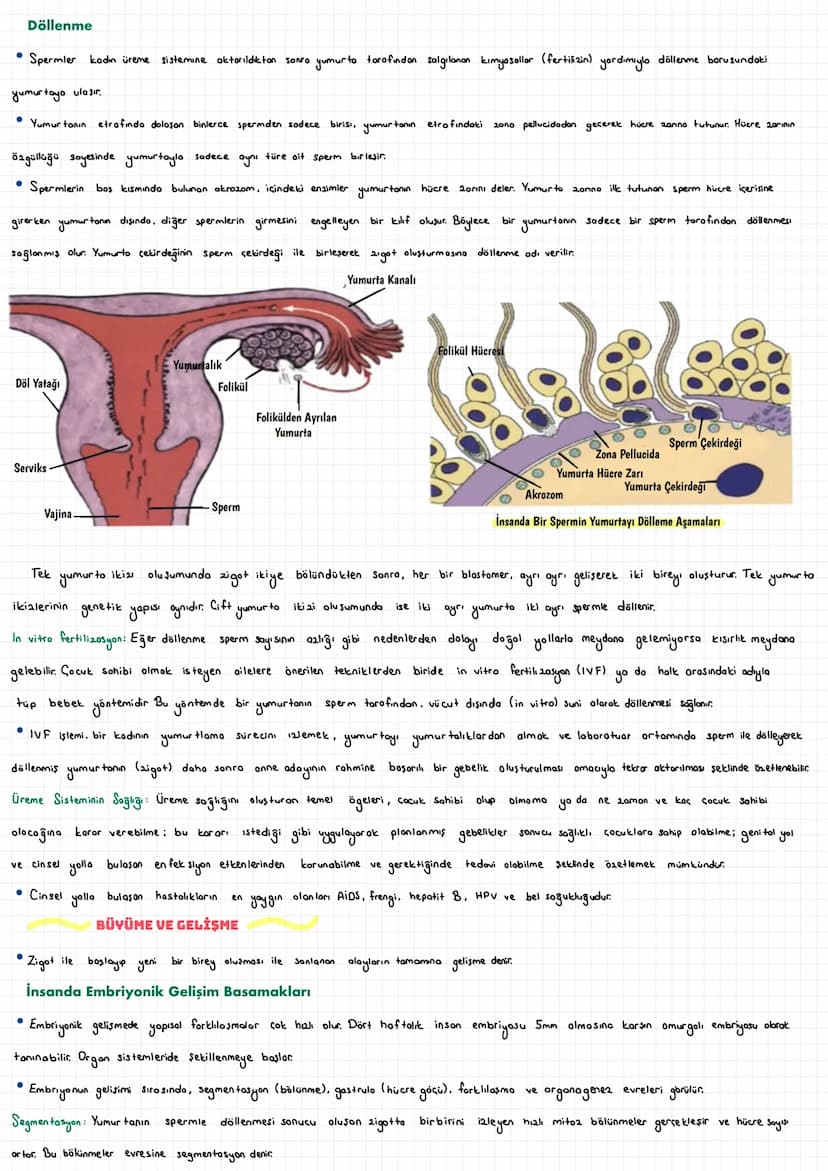 Döllenme
• Spermler kadın üreme sistemine aktarıldıktan sonra yumurta tarafından salgılanan kimyasallar (fertilizin) yardımıyla döllenme borusundaki
yumurtaya ulaşır.
• Yumurtanın etrafında dolaşan binlerce spermden sadece birisi, yumurtanın etrafındaki zona pellucidadan geçerek hücre zarına tutunur. Hücre zarının
özgüllüğü sayesinde yumurtayla sadece aynı türe ait sperm birleşir.
• Spermlerin baş kısmında bulunan akrozom, içindeki enzimler yumurtanın hücre zarını deler. Yumurta zarına ilk tutunan sperm hücre içerisine
girerken yumurtanın dışında, diğer spermlerin girmesini engelleyen bir kılıf oluşur. Böylece bir yumurtanın sadece bir sperm tarafından döllenmesi
sağlanmış olur. Yumurta çekirdeğinin sperm çekirdeği ile birleşerek zigot oluşturmasına döllenme adı verilir.
Yumurta Kanalı
Yumurtalık
Folikül
Döl Yatağı
Folikülden Ayrılan
Yumurta
Serviks
Sperm
Vajina
Folikül Hücresi
Sperm Çekirdeği
Zona Pellucida
Yumurta Hücre Zarı
Yumurta Çekirdeği
Akrozom
İnsanda Bir Spermin Yumurtayı Dölleme Aşamaları
Tek yumurta ikizi oluşumunda zigot ikiye bölündükten sonra, her bir blastomer, ayrı ayrı gelişerek iki bireyi oluşturur. Tek yumurta
ikizlerinin genetik yapısı aynıdır. Çift yumurta ikizi oluşumunda ise iki ayrı yumurta iki ayrı spermle döllenir.
İn vitro fertilizasyon: Eğer döllenme sperm sayısının azlığı gibi nedenlerden dolayı doğal yollarla meydana gelemiyorsa kısırlık meydana
gelebilir. Çocuk sahibi olmak isteyen ailelere önerilen tekniklerden biride in vitro fertilizasyon (IVF) ya da halk arasındaki adıyla
tüp bebek yöntemidir. Bu yöntemde bir yumurtanın sperm tarafından, vücut dışında (in vitro) suni olarak döllenmesi sağlanır.
• IVF işlemi, bir kadının yumurtlama sürecini izlemek, yumurtayı yumurtalıklardan almak ve laboratuar ortamında sperm ile dölleyerek
döllenmiş yumurtanın (zigot) daha sonra anne adayının rahmine başarılı bir gebelik oluşturulması amacıyla tekrar aktarılması şeklinde özetlenebilir.
Üreme Sisteminin Sağlığı: Üreme sağlığını oluşturan temel ögeleri, çocuk sahibi olup olmama ya da ne zaman ve kaç çocuk sahibi
olacağına karar verebilme; bu kararı istediği gibi uygulayarak planlanmış gebelikler sonucu sağlıklı çocuklara sahip olabilme; genital yol
ve cinsel yolla bulaşan enfeksiyon etkenlerinden korunabilme ve gerektiğinde tedavi olabilme şeklinde özetlemek mümkündür.
• Cinsel yolla bulaşan hastalıkların en yaygın olanları AIDS, frengi, hepatit B, HPV ve bel soğukluğudur.
BÜYÜME VE GELİŞME
• Zigot ile başlayıp yeni bir birey oluşması ile sonlanan olayların tamamına gelişme denir.
İnsanda Embriyonik Gelişim Basamakları
• Embriyonik gelişmede yapısal farklılaşmalar çok hızlı olur. Dört haftalık insan embriyosu 5mm olmasına karşın omurgalı embriyosu olarak
tanınabilir. Organ sistemleride şekillenmeye başlar.
• Embriyonun gelişimi sırasında, segmentasyon (bölünme), gastrula (hücre göçü), farklılaşma ve organogenez evreleri görülür.
Segmentasyon: Yumurtanın spermle döllenmesi sonucu oluşan zigotta birbirini izleyen hızlı mitoz bölünmeler gerçekleşir ve hücre sayısı
artar. Bu bölünmeler evresine segmentasyon denir.